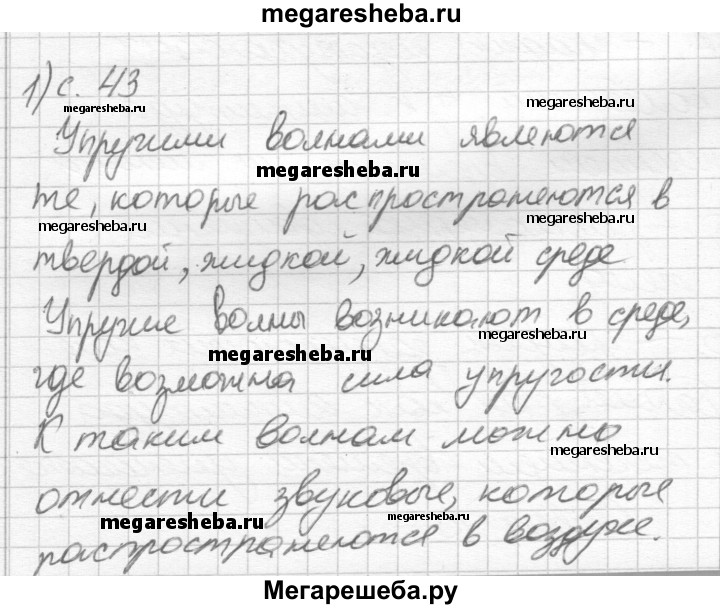 megaresheba.ru
1) с. 43
megaresheba.ru
megaresheba.ru
Упругими волнами являются
megaresheba.ru
те, которые распространяются в
megaresheba.ru
megaresheba.ru
твердой, жидкой, жидкой среде
Упругие волны возникают в среде,
megaresheba.ru
megaresheba.ru
где возможна сила упругости.
К таким волнам можно
megaresheba.ru
отнести звуковые, которые
megaresheba.ru
megaresheba.ru
распространяются в воздухе.
Мегарешеба.ру